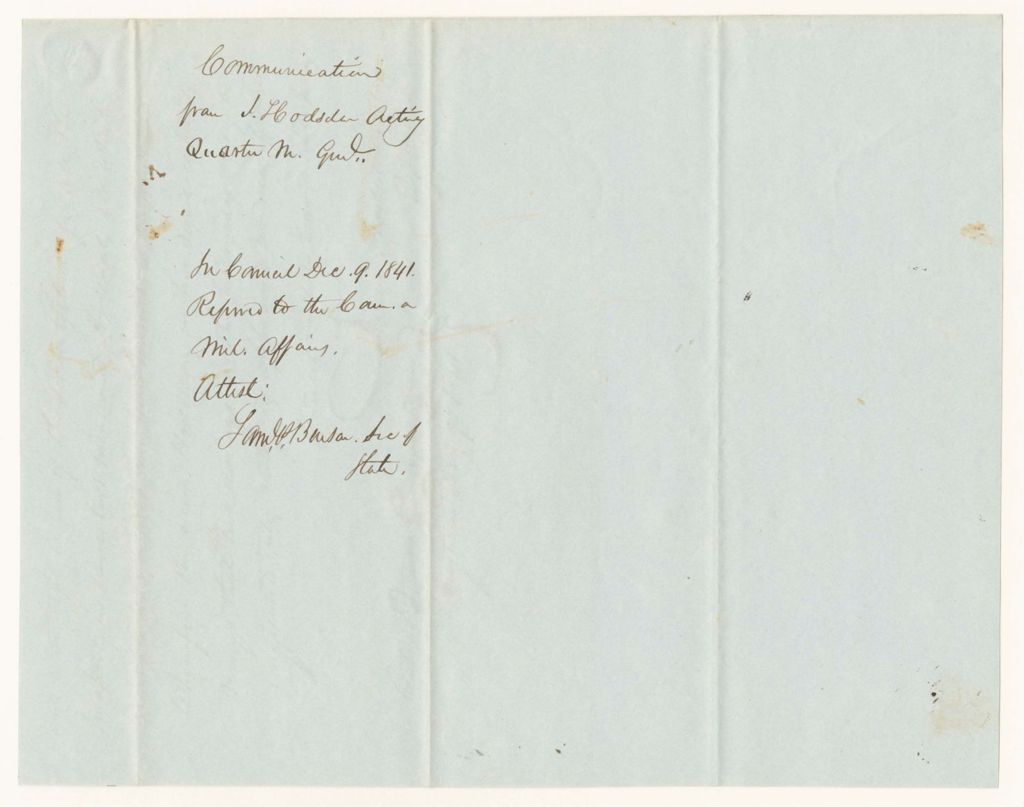 Communication
from I. Hodsdon Acting
Quarter M. Genl.
In Council Dec. 9. 1841.
Referred to the Com. on
Mil. Affairs.
Attest:
Saml. P. Benson. Sec. of
State.